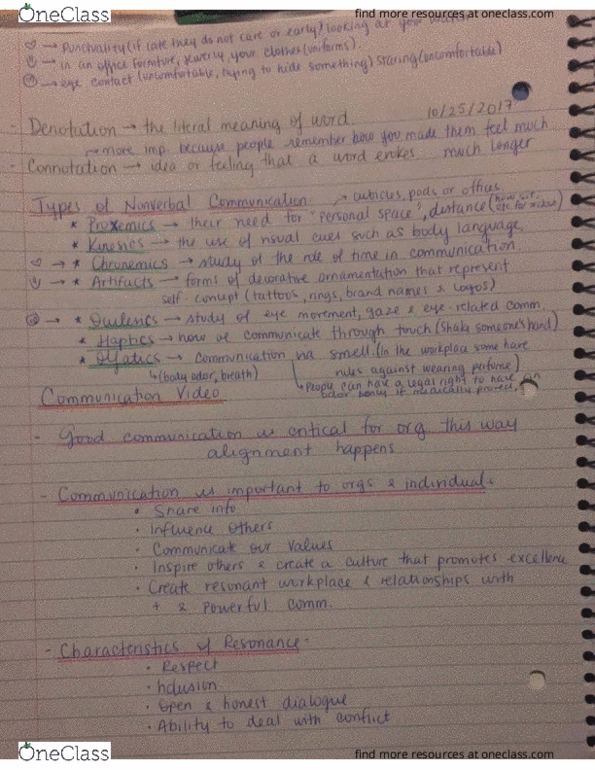 OneClass
find more resources at oneclass.com
→ Punctuality (if late they do not care or early) looking at your watch
→ in an office furniture, jewerly, your clothes (uniforms).
→ eye contact (uncomfortable, trying to hide something) staring (uncomfortable)
10/25/2017
- Denotation → the literal meaning of word.
→ more imp. because people remember how you made them feel much
- Connotation → idea or feeling that a word evokes much longer
Types of Nonverbal Communication → cubicles, pods or offices
* Proxemics → their need for "personal space", distance
* Kinesics → the use of visual cues such as body language
→ * Chronemics → study of the role of time in communication.
→ * Artifacts → forms of decorative ornamentation that represent
self-concept (tattoos, rings, brand names & logos)
→ * Oculesics → study of eye movement, gaze & eye-related comm.
* Haptics → how we communicate through touch (shake someone's hand)
* Olfatics → communication via smell. (In the workplace some have
rules against wearing perfume)
↳ (body odor, breath)
↳ People can have a legal right to have an
odor only if medically proved.
Communication Video
- Good communication is critical for org this way
alignment happens
- Communication is important to orgs & individuals
• Share info
• Influence others
• Communicate our values
• Inspire others & create a culture that promotes excellence
• Create resonant workplace & relationships with
+ & powerful comm.
- Characteristics of Resonance
• Respect
• Inclusion
• Open & honest dialogue
• Ability to deal with conflict
OneClass
find more resources at oneclass.com